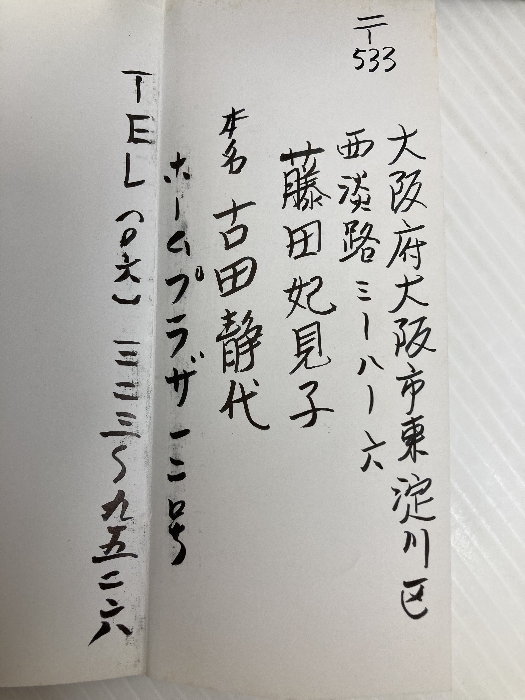 〒533
大阪府大阪市東淀川区
西淡路三ー八ー六
藤田妃見子
本名 古田静代
ホームプラザ一二号
TEL(〇六)三二三〜九五二六